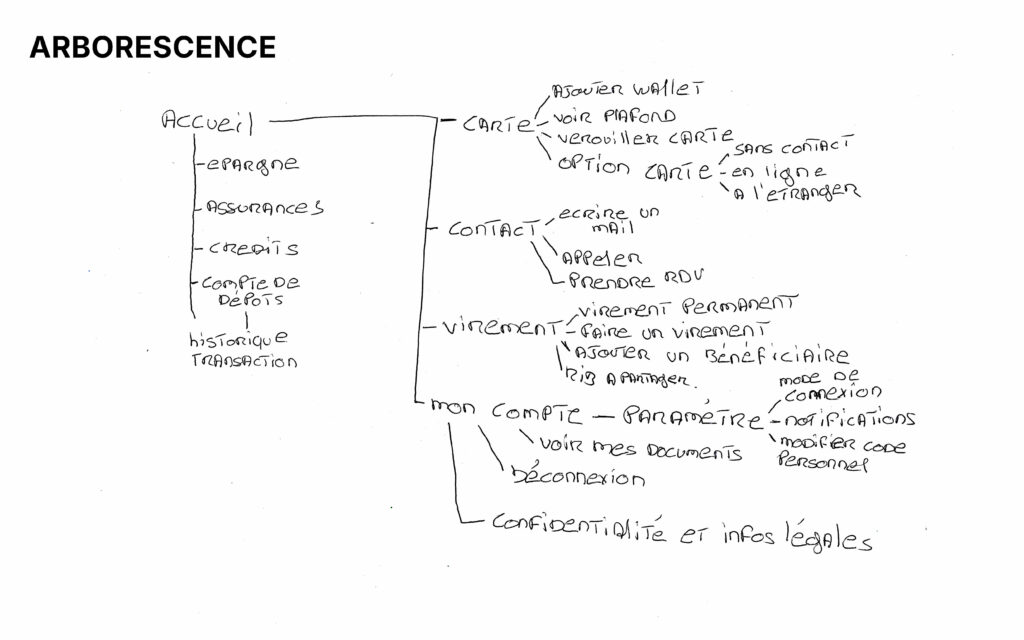 ARBORESCENCE
ACCUEIL
EPARGNE
ASSURANCES
CREDITS
COMPTE DE
DÉPOTS
HISTORIQUE
TRANSACTION
CARTE
AJOUTER WALLET
VOIR PLAFOND
VEROUILLER CARTE
OPTION CARTE
SANS CONTACT
EN LIGNE
A L'ETRANGER
CONTACT
ECRIRE UN
MAIL
APPELER
PRENDRE RDV
VIREMENT
VIREMENT PERMANENT
FAIRE UN VIREMENT
AJOUTER UN BÉNÉFICIAIRE
RIB A PARTAGER.
MON COMPTE
PARAMÉTRE
MODE DE
CONNEXION
NOTIFICATIONS
MODIFIER CODE
PERSONNEL
VOIR MES DOCUMENTS
DÉCONNEXION
CONFIDENTIALITÉ ET INFOS LÉGALES